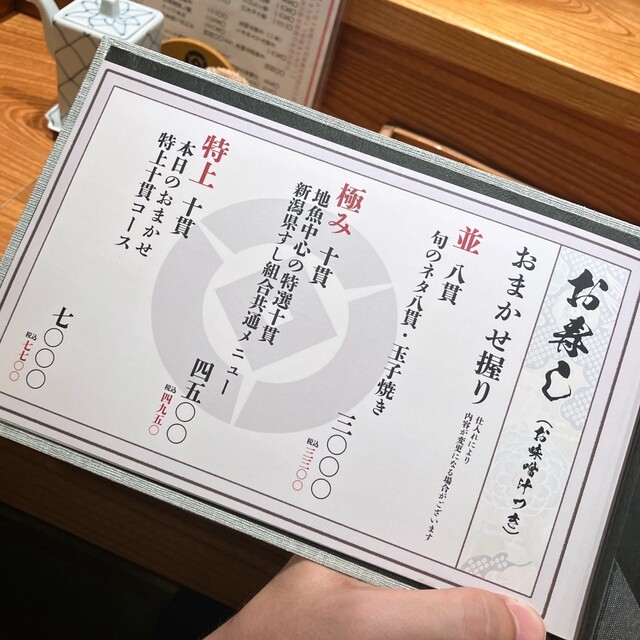 お寿し
(お味噌汁つき)
おまかせ握り
仕入れにより
内容が変更になる場合がございます
並 八貫
旬のネタ八貫・玉子焼き
三〇〇〇
税込三三〇〇
極み 十貫
地魚中心の特選十貫
新潟県すし組合共通メニュー
四五〇〇
税込四九五〇
特上 十貫
本日のおまかせ
特上十貫コース
七〇〇〇
税込七七〇〇